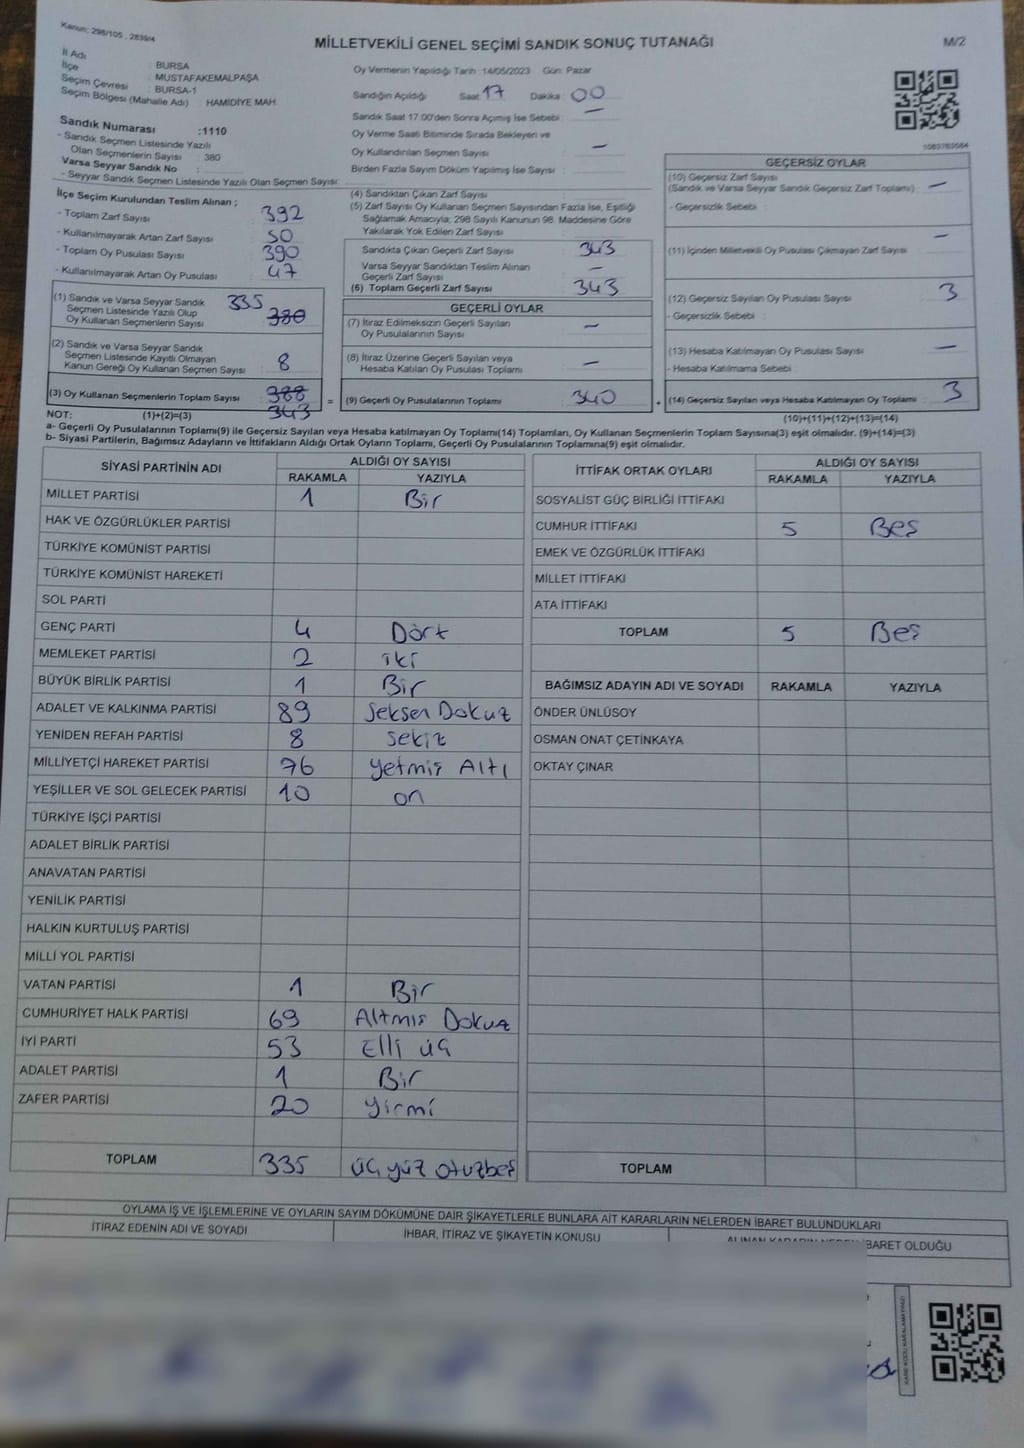 Kanun; 298/105 , 2839/4
MİLLETVEKİLİ GENEL SEÇİMİ SANDIK SONUÇ TUTANAĞI
M/2
İl Adı : BURSA
İlçe : MUSTAFAKEMALPAŞA
Seçim Çevresi : BURSA-1
Seçim Bölgesi (Mahalle Adı) : HAMİDİYE MAH.
Sandık Numarası :1110
- Sandık Seçmen Listesinde Yazılı
Olan Seçmenlerin Sayısı : 380
Varsa Seyyar Sandık No :
- Seyyar Sandık Seçmen Listesinde Yazılı Olan Seçmen Sayısı:
Oy Vermenin Yapıldığı Tarih :14/05/2023 Gün: Pazar
Sandığın Açıldığı Saat: 17 Dakika : 00
Sandık Saat 17:00'den Sonra Açımış İse Sebebi : —
Oy Verme Saati Bitiminde Sırada Bekleyen ve
Oy Kullandırılan Seçmen Sayısı : —
Birden Fazla Sayım Döküm Yapılmış İse Sayısı :
İlçe Seçim Kurulundan Teslim Alınan ;
- Toplam Zarf Sayısı : 392
- Kullanılmayarak Artan Zarf Sayısı : 50
- Toplam Oy Pusulası Sayısı : 390
- Kullanılmayarak Artan Oy Pusulası : 47
(1) Sandık ve Varsa Seyyar Sandık
Seçmen Listesinde Yazılı Olup
Oy Kullanan Seçmenlerin Sayısı : 335 380
(2) Sandık ve Varsa Seyyar Sandık
Seçmen Listesinde Kayıtlı Olmayan
Kanun Gereği Oy Kullanan Seçmen Sayısı : 8
(3) Oy Kullanan Seçmenlerin Toplam Sayısı : 388
343
(4) Sandıktan Çıkan Zarf Sayısı :
(5) Zarf Sayısı Oy Kullanan Seçmen Sayısından Fazla İse, Eşitliği
Sağlamak Amacıyla; 298 Sayılı Kanunun 98. Maddesine Göre
Yakılarak Yok Edilen Zarf Sayısı :
Sandıkta Çıkan Geçerli Zarf Sayısı : 343
Varsa Seyyar Sandıktan Teslim Alınan
Geçerli Zarf Sayısı : —
(6) Toplam Geçerli Zarf Sayısı : 343
GEÇERLİ OYLAR
(7) İtiraz Edilmeksizin Geçerli Sayılan
Oy Pusulalarının Sayısı : —
(8) İtiraz Üzerine Geçerli Sayılan veya
Hesaba Katılan Oy Pusulası Toplamı : —
= (9) Geçerli Oy Pusulalarının Toplamı : 340
1083783564
GEÇERSİZ OYLAR
(10) Geçersiz Zarf Sayısı
(Sandık ve Varsa Seyyar Sandık Geçersiz Zarf Toplamı) : —
- Geçersizlik Sebebi :
(11) İçinden Milletvekili Oy Pusulası Çıkmayan Zarf Sayısı : —
(12) Geçersiz Sayılan Oy Pusulası Sayısı : 3
- Geçersizlik Sebebi :
(13) Hesaba Katılmayan Oy Pusulası Sayısı : —
- Hesaba Katılmama Sebebi :
+ (14) Geçersiz Sayılan veya Hesaba Katılmayan Oy Toplamı : 3
NOT: (1)+(2)=(3)
(10)+(11)+(12)+(13)=(14)
a- Geçerli Oy Pusulalarının Toplamı(9) ile Geçersiz Sayılan veya Hesaba katılmayan Oy Toplamı(14) Toplamları, Oy Kullanan Seçmenlerin Toplam Sayısına(3) eşit olmalıdır. (9)+(14)=(3)
b- Siyasi Partilerin, Bağımsız Adayların ve İttifakların Aldığı Ortak Oyların Toplamı, Geçerli Oy Pusulalarının Toplamına(9) eşit olmalıdır.
SİYASİ PARTİNİN ADI
ALDIĞI OY SAYISI
RAKAMLA YAZIYLA
MİLLET PARTİSİ 1 Bir
HAK VE ÖZGÜRLÜKLER PARTİSİ
TÜRKİYE KOMÜNİST PARTİSİ
TÜRKİYE KOMÜNİST HAREKETİ
SOL PARTİ
GENÇ PARTİ 4 Dört
MEMLEKET PARTİSİ 2 iki
BÜYÜK BİRLİK PARTİSİ 1 Bir
ADALET VE KALKINMA PARTİSİ 89 Seksen Dokuz
YENİDEN REFAH PARTİSİ 8 sekiz
MİLLİYETÇİ HAREKET PARTİSİ 76 yetmiş Altı
YEŞİLLER VE SOL GELECEK PARTİSİ 10 on
TÜRKİYE İŞÇİ PARTİSİ
ADALET BİRLİK PARTİSİ
ANAVATAN PARTİSİ
YENİLİK PARTİSİ
HALKIN KURTULUŞ PARTİSİ
MİLLİ YOL PARTİSİ
VATAN PARTİSİ 1 Bir
CUMHURİYET HALK PARTİSİ 69 Altmış Dokuz
İYİ PARTİ 53 Elli üç
ADALET PARTİSİ 1 Bir
ZAFER PARTİSİ 20 yirmi
TOPLAM 335 üç yüz otuzbeş
İTTİFAK ORTAK OYLARI
ALDIĞI OY SAYISI
RAKAMLA YAZIYLA
SOSYALİST GÜÇ BİRLİĞİ İTTİFAKI
CUMHUR İTTİFAKI 5 Beş
EMEK VE ÖZGÜRLÜK İTTİFAKI
MİLLET İTTİFAKI
ATA İTTİFAKI
TOPLAM 5 Beş
BAĞIMSIZ ADAYIN ADI VE SOYADI RAKAMLA YAZIYLA
ÖNDER ÜNLÜSOY
OSMAN ONAT ÇETİNKAYA
OKTAY ÇINAR
TOPLAM
OYLAMA İŞ VE İŞLEMLERİNE VE OYLARIN SAYIM DÖKÜMÜNE DAİR ŞİKAYETLERLE BUNLARA AİT KARARLARIN NELERDEN İBARET BULUNDUKLARI
İTİRAZ EDENİN ADI VE SOYADI
İHBAR, İTİRAZ VE ŞİKAYETİN KONUSU
ALINAN KARARIN NEDEN İBARET OLDUĞU
KARE KODU KARALAMAYINIZ!